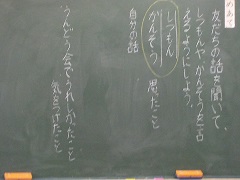 めあて
友だちの話を聞いて、
しつもんや、かんそうを言
えるようにしよう。
しつもん
かんそう 思ったこと
自分の話
うんどう会でうれしかったこと
気をつけたこと